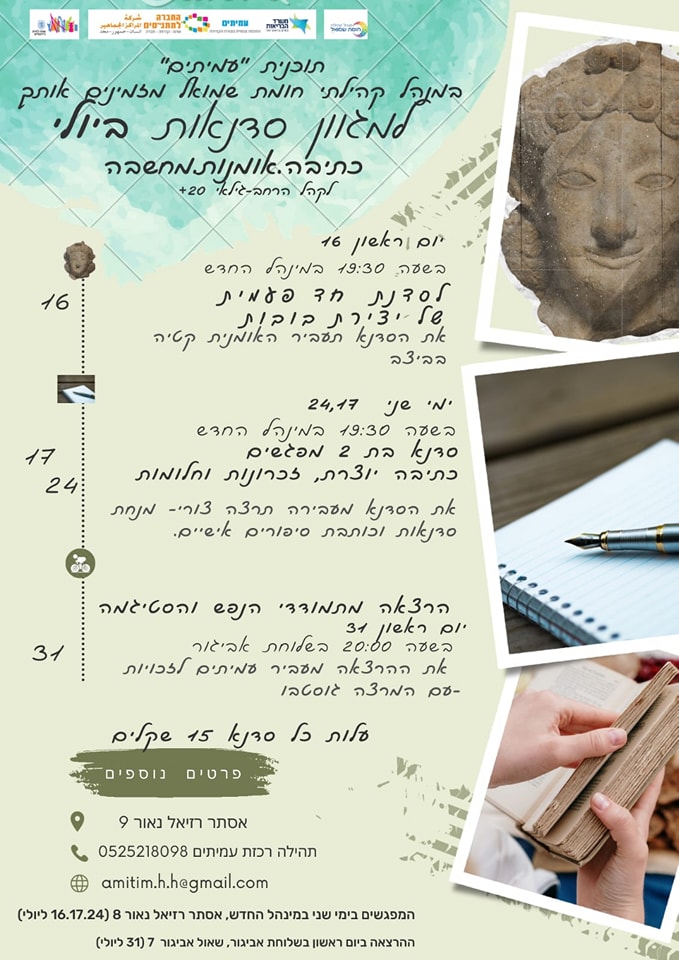 חומת שמואל
משרד הבריאות
עמיתים
החברה למתנ"סים
شركة المراكز الجماهيرية
תוכנית "עמיתים"
במנהל קהילתי חומת שמואל מזמינים אותך
למגוון סדנאות ביולי
כתיבה.אומנות.מחשבה
לקהל הרחב-גילאי 20+
יום ראשון 16
בשעה 19:30 במינהל החדש
לסדנת חד פעמית
של יצירת בובות
את הסדנא תעביר האומנית קטיה
בביצב
16
ימי שני 24,17
בשעה 19:30 במינהל החדש
סדנא בת 2 מפגשים
כתיבה יוצרת, זכרונות וחלומות
17
24
את הסדנא מעבירה תרצה צורי- מנחת
סדנאות וכותבת סיפורים אישיים.
הרצאה מתמודדי הנפש והסטיגמה
יום ראשון 31
בשעה 20:00 בשלוחת אביגור
את ההרצאה מעביר עמיתים לזכויות
-עם המרצה גוסטבו
31
עלות כל סדנא 15 שקלים
פרטים נוספים
אסתר רזיאל נאור 9
תהילה רכזת עמיתים 0525218098
amitim.h.h@gmail.com
המפגשים בימי שני במינהל החדש, אסתר רזיאל נאור 8 (16.17.24 ליולי)
ההרצאה ביום ראשון בשלוחת אביגור, שאול אביגור 7 (31 ליולי)